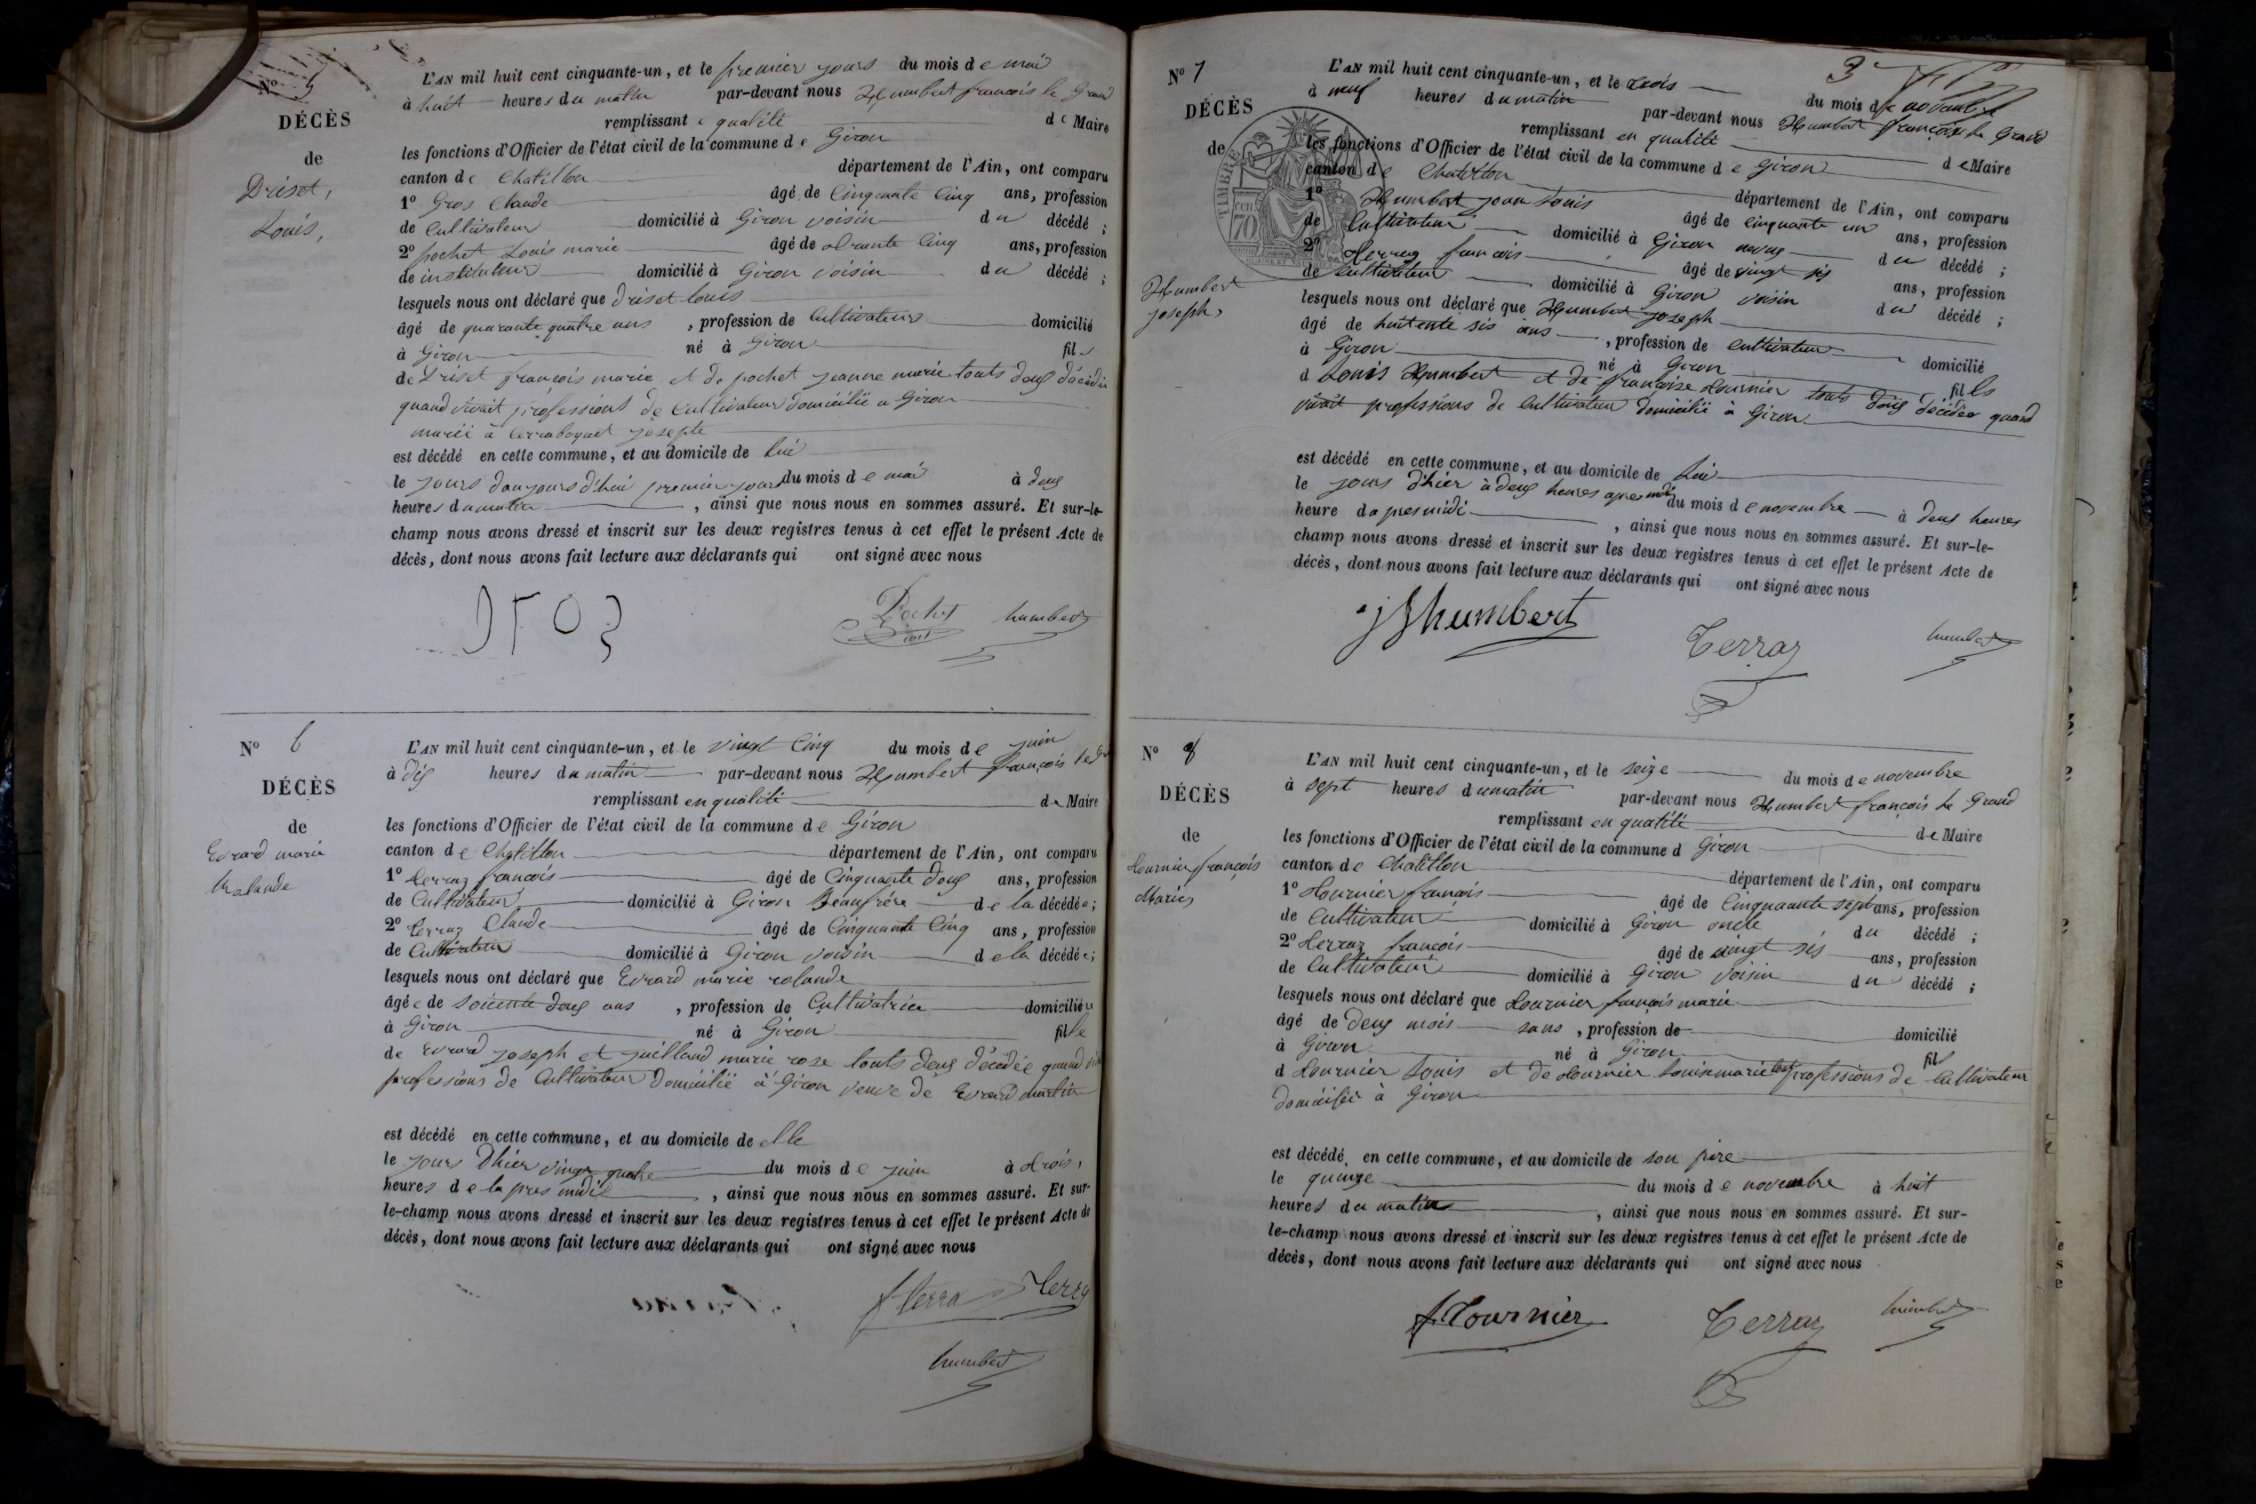 Nº 5
DÉCÈS
de
Driset,
Louis,
L'AN mil huit cent cinquante-un, et le premier jours du mois de mai
à huit heures du matin par-devant nous Humbert françois le Grand
remplissant e qualité de Maire
les fonctions d'Officier de l'état civil de la commune de Giron
canton de Chatillon département de l'Ain, ont comparu
1º Gros Claude âgé de Cinquante Cinq ans, profession
de Cultivateur domicilié à Giron voisin du décédé ;
2º pochet Louis marie âgé de trante Cinq ans, profession
de instituteur domicilié à Giron voisin du décédé ;
lesquels nous ont déclaré que Driset louis
âgé de quarante quatre ans , profession de Cultivateurs domicilié
à Giron né à Giron fils
de Driset françois marie et de pochet jeanne marie touts deux décédés
quand vivait professions de Cultivateur domicilié a Giron
mariè à josepte
est décédé en cette commune, et au domicile de lui
le jours daujours d'hui premier jours du mois de mai à deux
heures du matin , ainsi que nous nous en sommes assuré. Et sur-le-
champ nous avons dressé et inscrit sur les deux registres tenus à cet effet le présent Acte de
décès, dont nous avons fait lecture aux déclarants qui ont signé avec nous
Pochet humbert
Nº 6
DÉCÈS
de
Evrard marie
Rolande
L'AN mil huit cent cinquante-un, et le vingt Cinq du mois de juin
à dix heures du matin par-devant nous Humbert françois le
remplissant en qualité de Maire
les fonctions d'Officier de l'état civil de la commune de Giron
canton de Chatillon département de l'Ain, ont comparu
1º Terraz françois âgé de Cinquante doux ans, profession
de Cultivateur domicilié à Giron Beaufrère de la décédée ;
2º Terraz Claude âgé de Cinquante Cinq ans, profession
de Cultivateur domicilié à Giron voisin de la décédée ;
lesquels nous ont déclaré que Evrard marie rolande
âgée de soicente doux ans , profession de Cultivatrice domiciliée
à Giron né à Giron fille
de Evrard joseph et juilland marie rose touts deux décédée quand
professions de Cultivateur Domicilié à Giron veuve de Evrard martin
est décédé en cette commune, et au domicile de elle
le jours Dhier vingt quatre du mois de juin à trois,
heures de la pres midi , ainsi que nous nous en sommes assuré. Et sur-
le-champ nous avons dressé et inscrit sur les deux registres tenus à cet effet le présent Acte de
décès, dont nous avons fait lecture aux déclarants qui ont signé avec nous
f terra Terra
humbert
Nº 7
DÉCÈS
de
Humbert
joseph,
TIMBRE
70
L'AN mil huit cent cinquante-un, et le trois du mois de novembre
à neuf heures du matin par-devant nous Humbert françois le Grand
remplissant en qualité de Maire
les fonctions d'Officier de l'état civil de la commune de Giron
canton de Chatillon département de l'Ain, ont comparu
1º Humbert jean Louis âgé de cinquante un ans, profession
de Cultivateur domicilié à Giron neveu du décédé ;
2º Terraz françois âgé de vingt sis ans, profession
de Cultivateur domicilié à Giron voisin du décédé ;
lesquels nous ont déclaré que Humbert joseph
âgé de huitente sis ans , profession de Cultivateur domicilié
à Giron né à Giron fils
d Louis Humbert et de françoise tournier touts doux décédés quand
vivait professions de Cultivateur domicilié à Giron
est décédé en cette commune, et au domicile de Lui
le jours d'hier à deux heures apres midi du mois de novembre à deux heures
heure dapresmidi , ainsi que nous nous en sommes assuré. Et sur-le-
champ nous avons dressé et inscrit sur les deux registres tenus à cet effet le présent Acte de
décès, dont nous avons fait lecture aux déclarants qui ont signé avec nous
humbert
Terraz
humbert
Nº 8
DÉCÈS
de
tournier françois
Marie
L'AN mil huit cent cinquante-un, et le seize du mois de novembre
à sept heures du matin par-devant nous Humbert françois le Grand
remplissant en qualité de Maire
les fonctions d'Officier de l'état civil de la commune d Giron
canton de Chatillon département de l'Ain, ont comparu
1º tournier françois âgé de Cinquante sept ans, profession
de Cultivateur domicilié à Giron oncle du décédé ;
2º Terraz françois âgé de vingt sis ans, profession
de Cultivateur domicilié à Giron voisin du décédé ;
lesquels nous ont déclaré que tournier françois marie
âgé de deux mois sans , profession de domicilié
à Giron né à Giron fils
d tournier Louis et de tournier Louise marie professions de Cultivateur
domicilié à Giron
est décédé en cette commune, et au domicile de son père
le quinze du mois de novembre à huit
heures du matin , ainsi que nous nous en sommes assuré. Et sur-
le-champ nous avons dressé et inscrit sur les deux registres tenus à cet effet le présent Acte de
décès, dont nous avons fait lecture aux déclarants qui ont signé avec nous
f. Tournier
Terraz
humbert